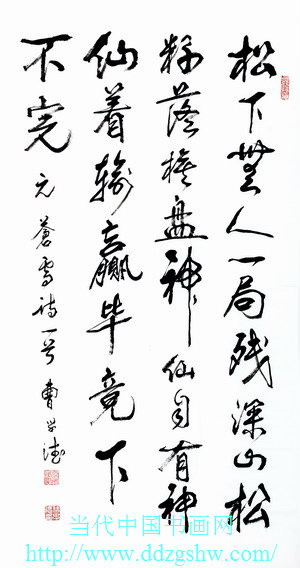 松下無人一局残深山松
籽落棋盘神仙自有神
仙着輸赢毕竟下
不完
元蒼雪诗一首 曹学
当代中国书画网
http://www.ddzgshw.com/